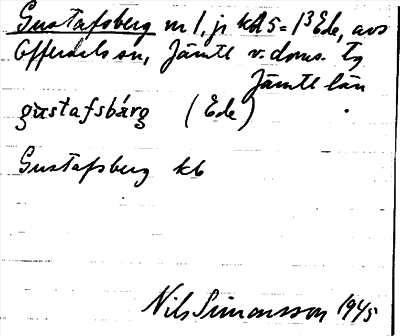 Gustafsberg nr 1, js kA 5 = 1³ Ede, avs
Offerdals sn, Jämtl v. doms. tg
Jämtl län
gùstafsbárg (Ede)
Gustafsberg kb
Nils Simonsson 1945